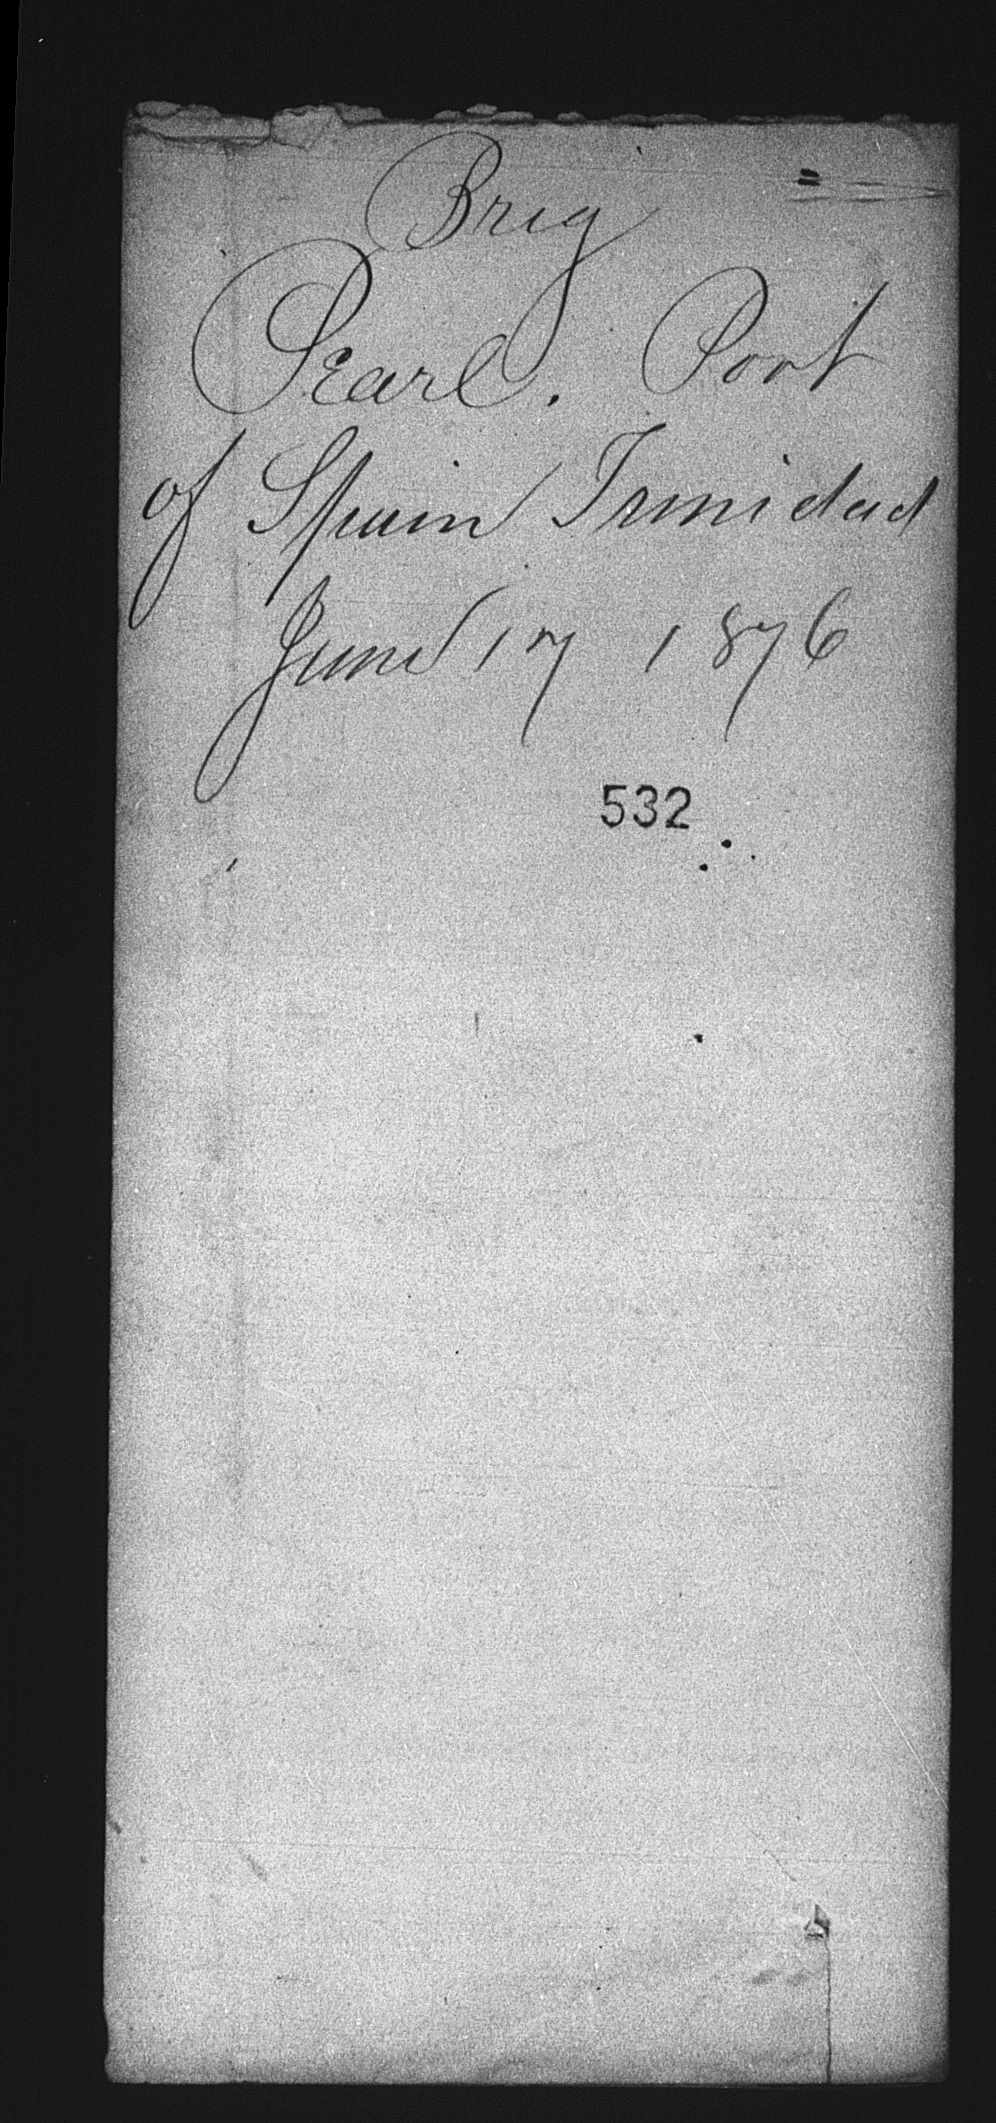 Brig
Pearl. Port
of Spain Trinidad
June 17 1876
532